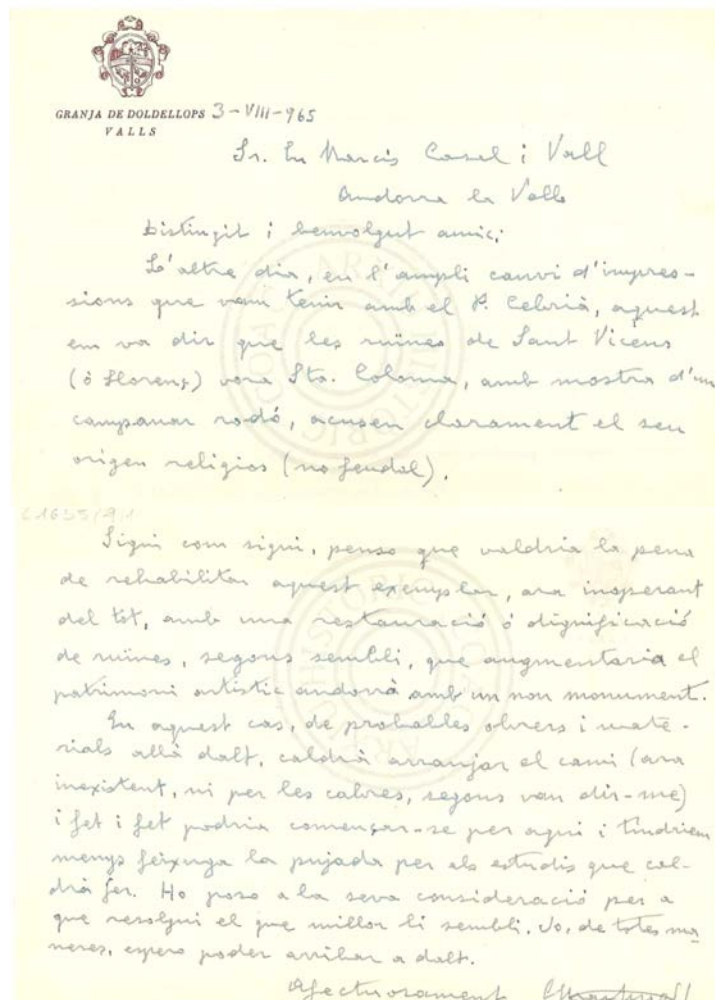 GRANJA DE DOLDELLOPS 3-VIII-965
VALLS
Sr. En Narcís Casal i Vall
Andorra la Vella
Distingit i benvolgut amic:
L'altre dia, en l'ampli canvi d'impres-
sions que vam tenir amb el P. Cebrià, aquest
em va dir que les ruïnes de Sant Vicens
(ò Llorenç) vora Sta. Coloma, amb mostra d'un
campanar rodó, acusen clarament el seu
origen religios (no feudal).
Sigui com sigui, penso que valdria la pena
de rehabilitar aquest exemplar, ara inoperant
del tot, amb una restauració ó dignificació
de ruïnes, segons sembli, que augmentaria el
patrimoni artistic andorrà amb un nou monument.
En aquest cas, de probables obrers i mate-
rials allà dalt, caldrà arranjar el camí (ara
inexistent, ni per les cabres, segons van dir-me)
i fet i fet podria començar-se per aqui i tindriem
menys feixuga la pujada per als estudis que cal-
drà fer. Ho poso a la seva consideració per a
que resolgui el que millor li sembli. Jo, de totes ma
neres, espero poder arribar a dalt.
Afectuosament CMartinell
ARXIU HISTORIC COAC